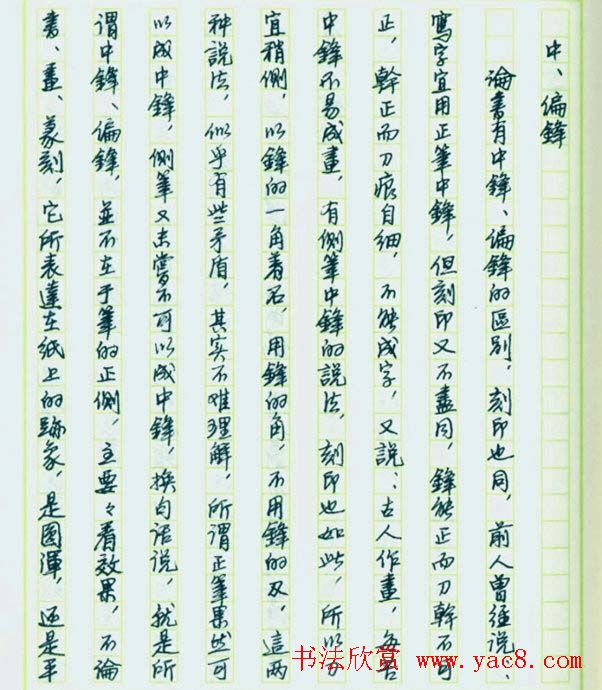 中、偏鋒
論書有中鋒、偏鋒的區别，刻印也同，前人曾經説、
寫字宜用正筆中鋒，但刻印又不盡同，鋒能正而刀幹不可
正，幹正而刀痕自细，不能成字，又説：古人作畫，每苦
中鋒不易成畫，有側筆中鋒的説法，刻印也如此，所以刀
宜稍側，以鋒的一角着石，用鋒的角，不用鋒的刄，這两
种説法，似乎有些矛盾，其实不难理解，所謂正筆果然可
以成中鋒，側筆又未嘗不可以成中鋒，换句话説，就是所
謂中鋒、偏鋒，並不在于筆的正側，主要々看效果，不論
書、畫、篆刻，它所表達在紙上的跡象，是圆渾，还是平
书法欣赏 www.yac8.com